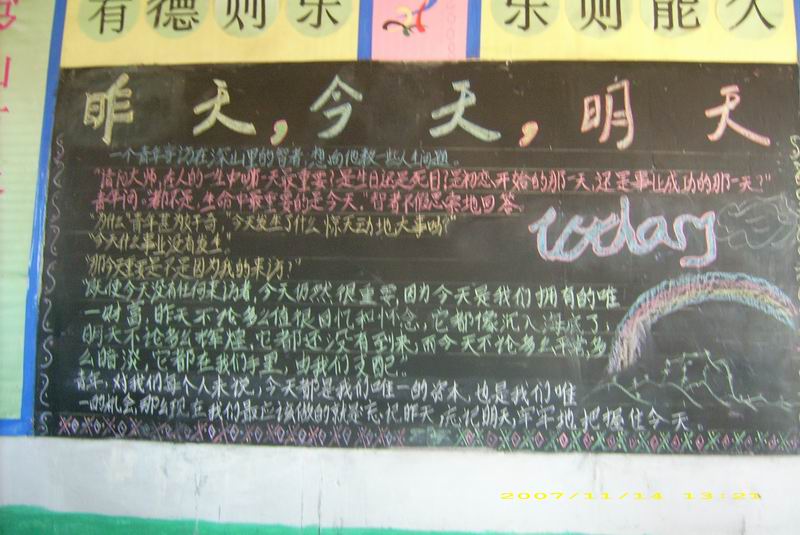 有德则乐
乐则能久
昨天,今天,明天
一个青年寻访在深山里的智者,想向他教一些人生问题。
"请问大师,在人的一生中哪一天最重要?是生日还是死日?是初恋开始的那一天,还是事业成功的那一天?"
青年问。"都不是,生命中最重要的是今天。"智者不假思索地回答。
"为什么"青年甚为好奇,"今天发生了什么惊天动地大事吗?"
"今天什么事也没有发生。"
"那今天重要是不是因为我的来访?"
today
"既使今天没有任何来访者,今天仍然很重要,因为今天是我们拥有的唯
一财富;昨天不论多么值得回忆和怀念,它都像沉入海底了,
明天不论多么辉煌,它都还没有到来,而今天不论多么平常,多
么暗淡,它都在我们手里,由我们支配。"
青年,对我们每个人来说,今天都是我们唯一的资本,也是我们唯
一的机会,那么现在我们最应该做的就是忘记昨天,忘记明天,牢牢地把握住今天。
2007/11/14 13:21